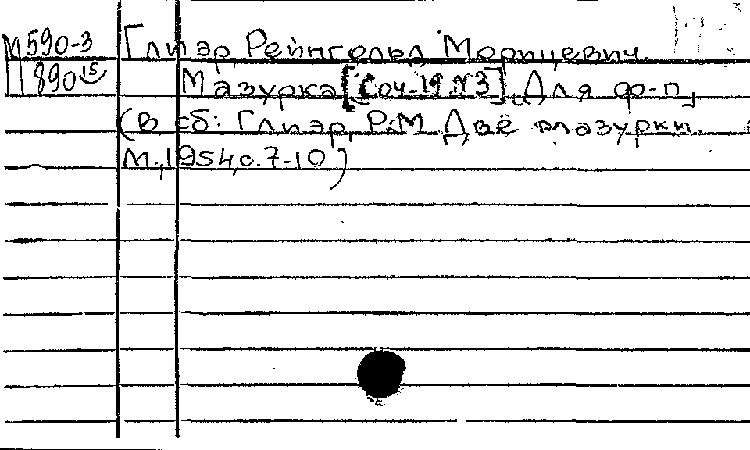 М590-3 Глиэр, Рейнгольд Морицевич.
П890 15 Мазурка [Соч. 19. №3]. Для ф-п.
(В сб: Глиэр, Р.М. Две мазурки.
М., 1954, с. 7-10)